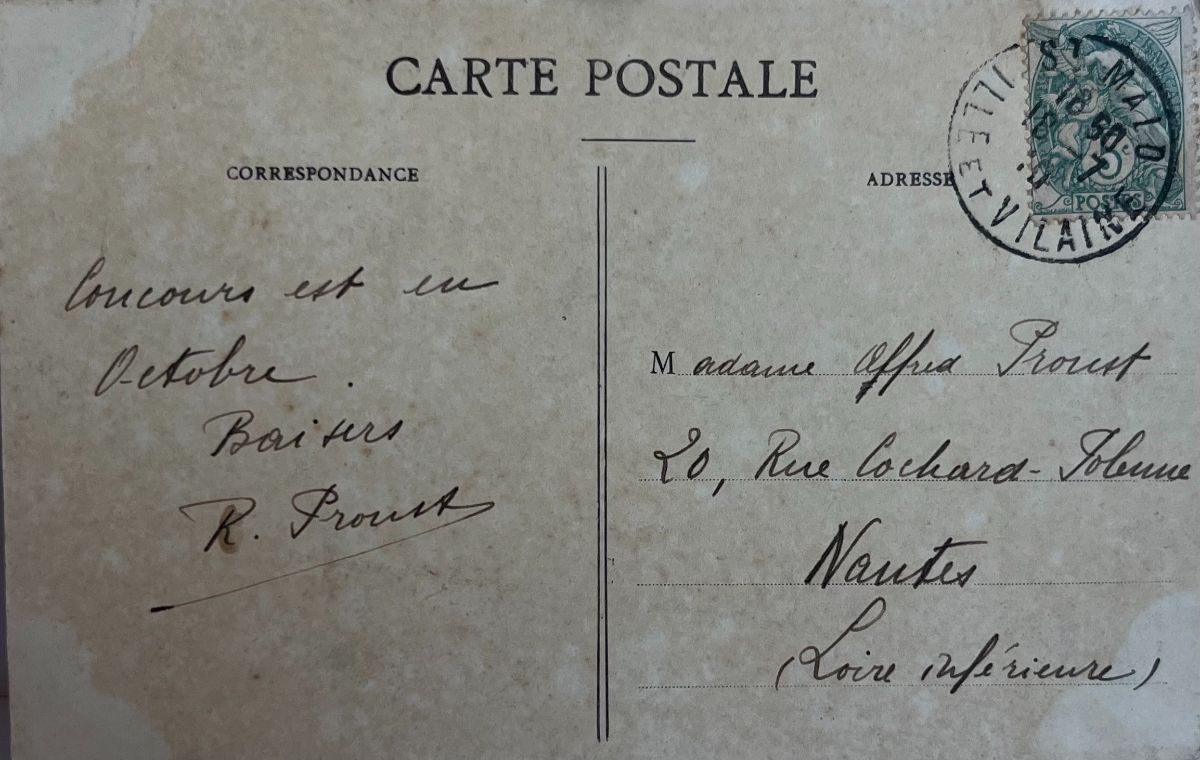 CARTE POSTALE
CORRESPONDANCE
Concours est en
Octobre.
Baisers
R. Proust
ADRESSE
Madame Alfred Proust
20, Rue Cochard-
Nantes
(Loire inférieure)
ST MALO
ILLE ET VILAINE
5c
POSTES